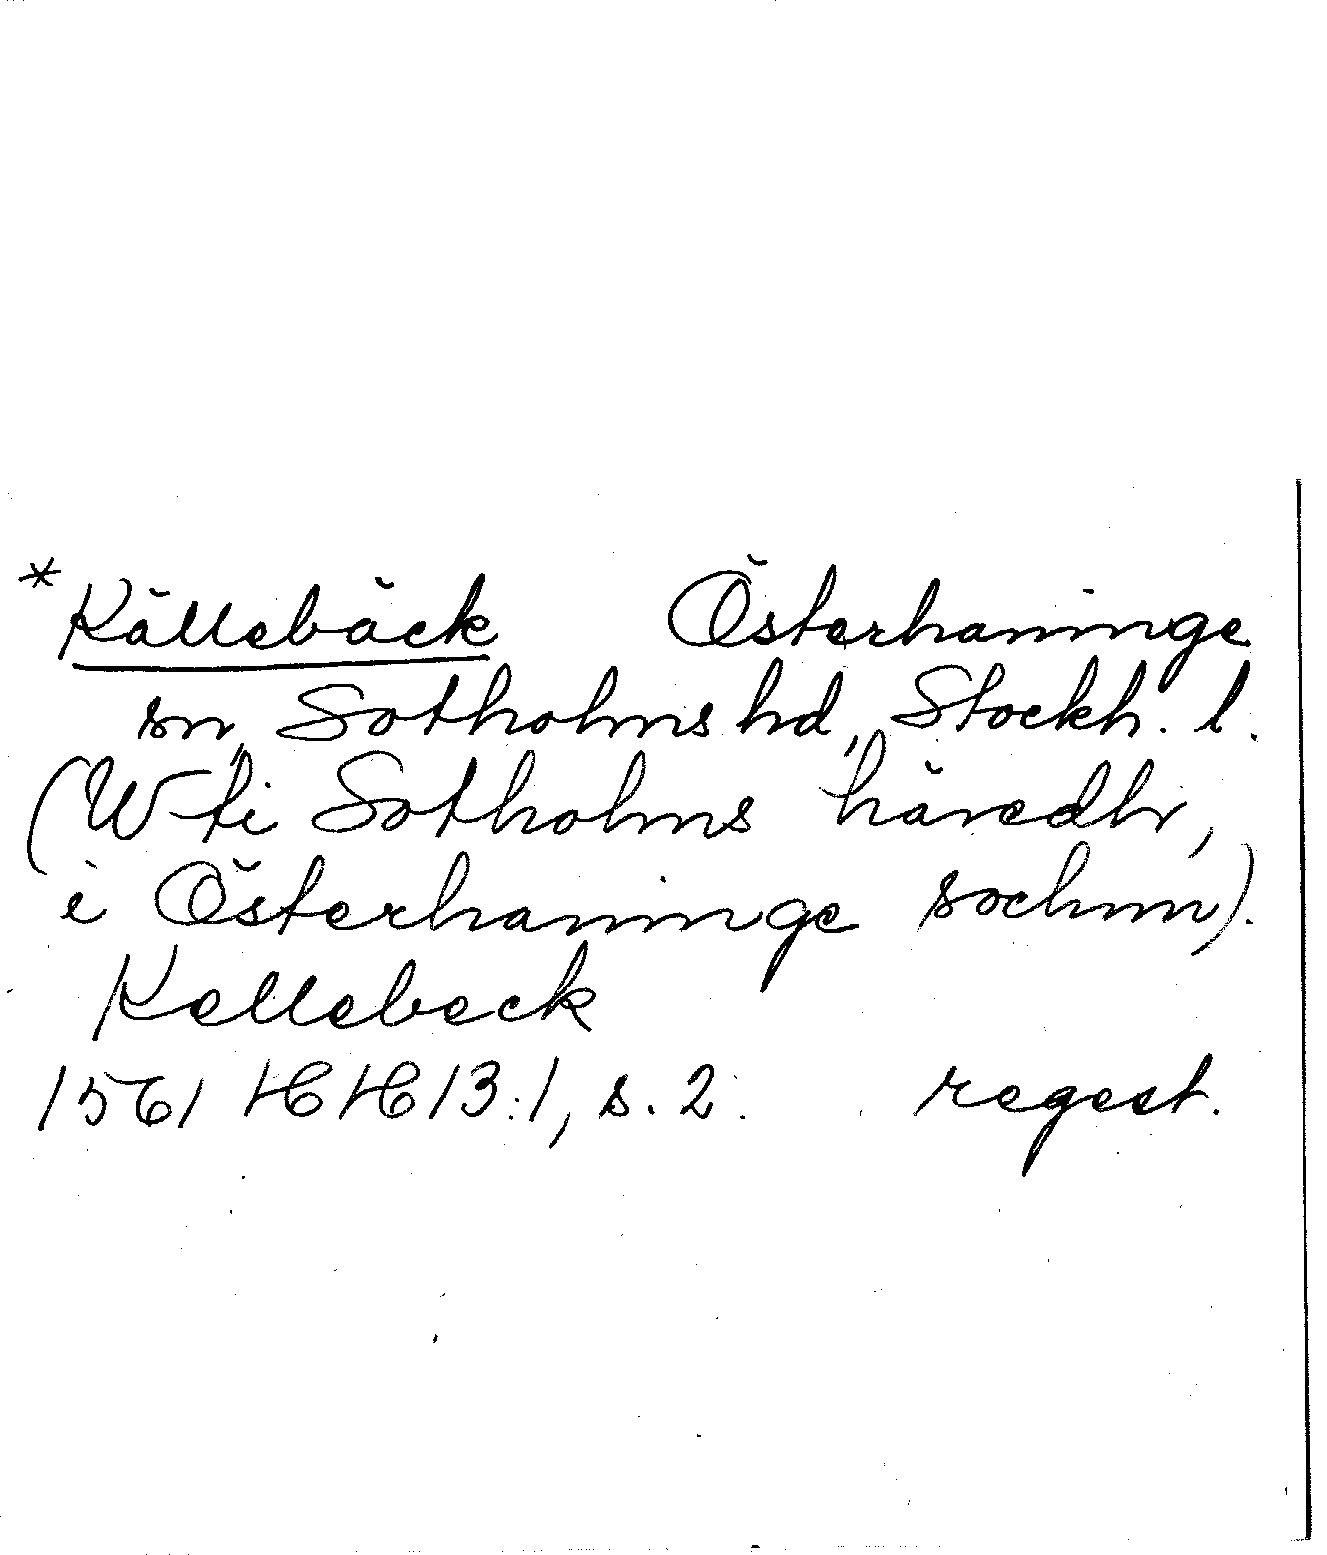 *Källebäck Österhaninge
sn, Sotholms hd, Stockh. l.
(W ti Sotholms häredhr,
i Österhaninge sochnn).
Kellebeck
1561 HH 13:1, s. 2. regest.